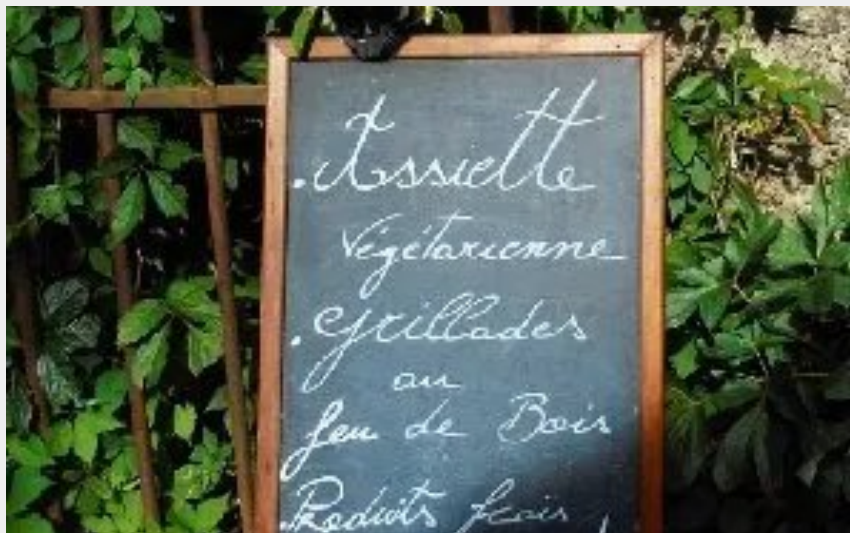 . Assiette
Végétarienne
. Grillades
au
feu de Bois
Produits frais